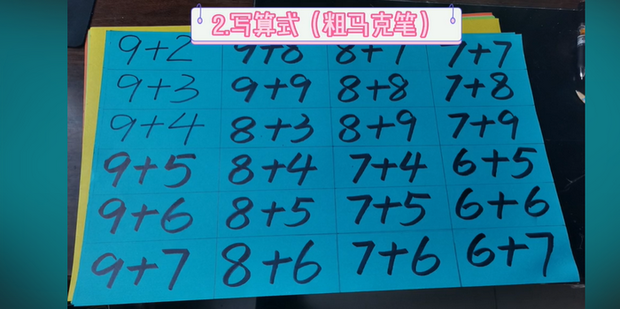 2.写算式（粗马克笔）
9+2 9+8 8+7 7+7
9+3 9+9 8+8 7+8
9+4 8+3 8+9 7+9
9+5 8+4 7+4 6+5
9+6 8+5 7+5 6+6
9+7 8+6 7+6 6+7